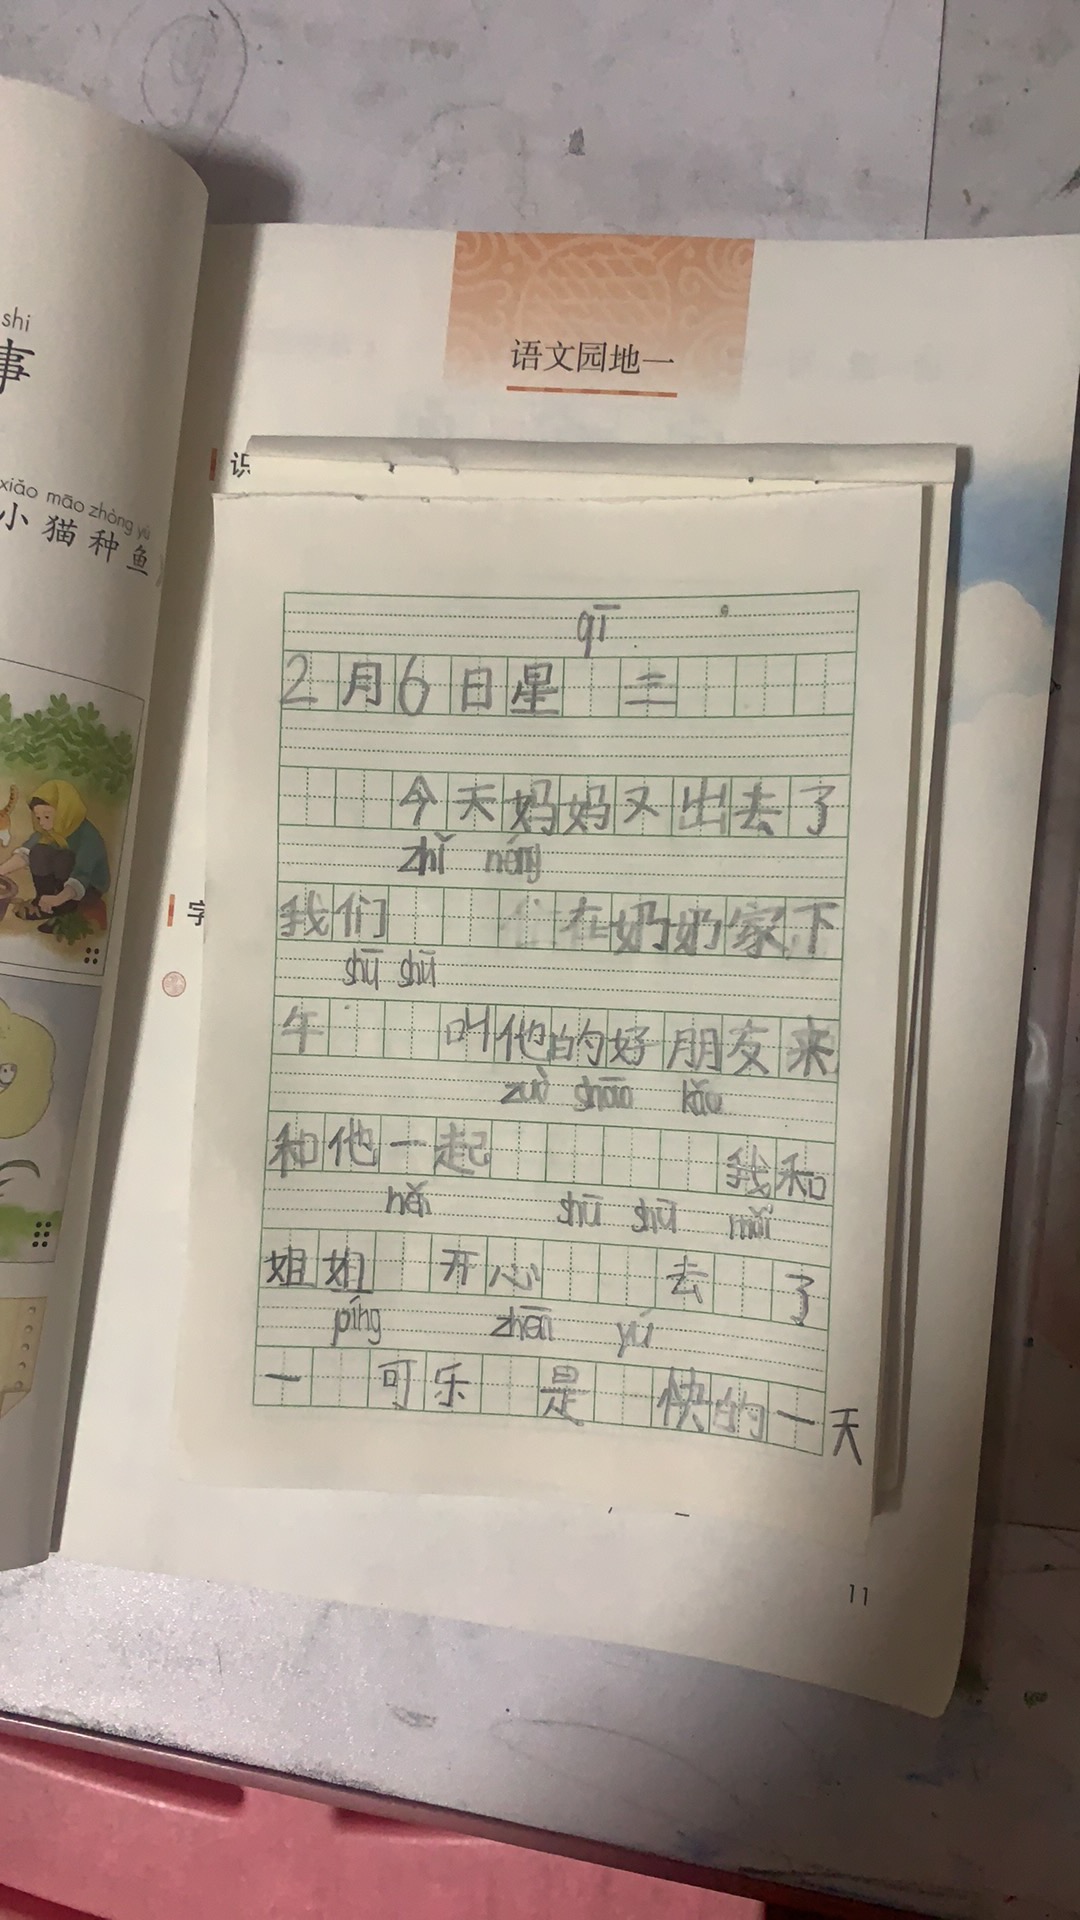 shi
事
xiǎo māo zhòng yú
小猫种鱼》
语文园地一
识
字
qī
2月6日星 三
今天妈妈又出去了
zhǐ néng
我们 住在奶奶家下
shū shū
午 叫他的好朋友来
zuò shāo kǎo
和他一起 我和
hěn shū shū mǎi
姐姐 开心 去 了
píng zhēn yú
一 可乐 是 快的一天
11